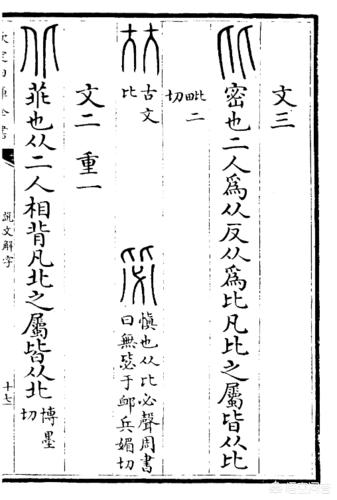 文三
比 密也二人爲从反从爲比凡比之屬皆从比
毗二
切
古文
比
毖 慎也从比必聲周書
曰無毖于卹兵媚切
文二 重一
北 乖也从二人相背凡北之屬皆从北
博墨
切
說文解字
十七